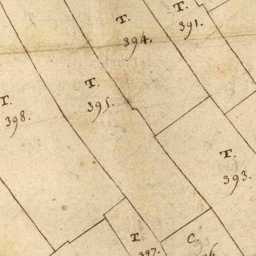 T.
391.
T.
394.
T.
395.
T.
398.
T.
393.
T.
397.
C